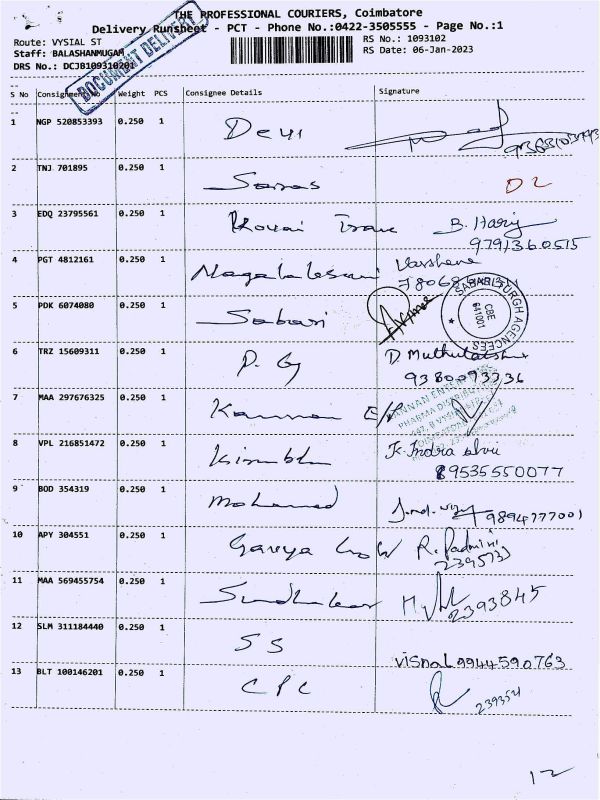 THE PROFESSIONAL COURIERS, Coimbatore
Delivery Runsheet - PCT - Phone No.:0422-3505555 - Page No.:1
Route: VYSIAL ST
RS No.: 1093102
Staff: BALASHANMUGAM
RS Date: 06-Jan-2023
DRS No.: DCJB109310201
DOCUMENT DELIVERY
S No Consignment No Weight PCS Consignee Details Signature
1 NGP 520853393 0.250 1 Devi
2 TNJ 701895 0.250 1 Saras D2
3 EDQ 23795561 0.250 1 Kovai B. Harij
9791360515
4 PGT 4812161 0.250 1 Varshene
5 PDK 6074080 0.250 1 Sabari
SABARI SURGH AGENCEES
CBE
641001
6 TRZ 15609311 0.250 1 P. G D. Muthulakshmi
9380093336
7 MAA 297676325 0.250 1 Kannan E/P
KANNAN ENTERPRISES
PHARMA DISTRIBUTORS
8 VPL 216851472 0.250 1 K. Indra
89535550077
9 BOD 354319 0.250 1 Mohamed
9894777001
10 APY 304551 0.250 1 R. Padmini
2395733
11 MAA 569455754 0.250 1 Sundhakar
2393845
12 SLM 311184440 0.250 1 SS visnal 9944590763
13 BLT 100146201 0.250 1 CPC
2393521
12